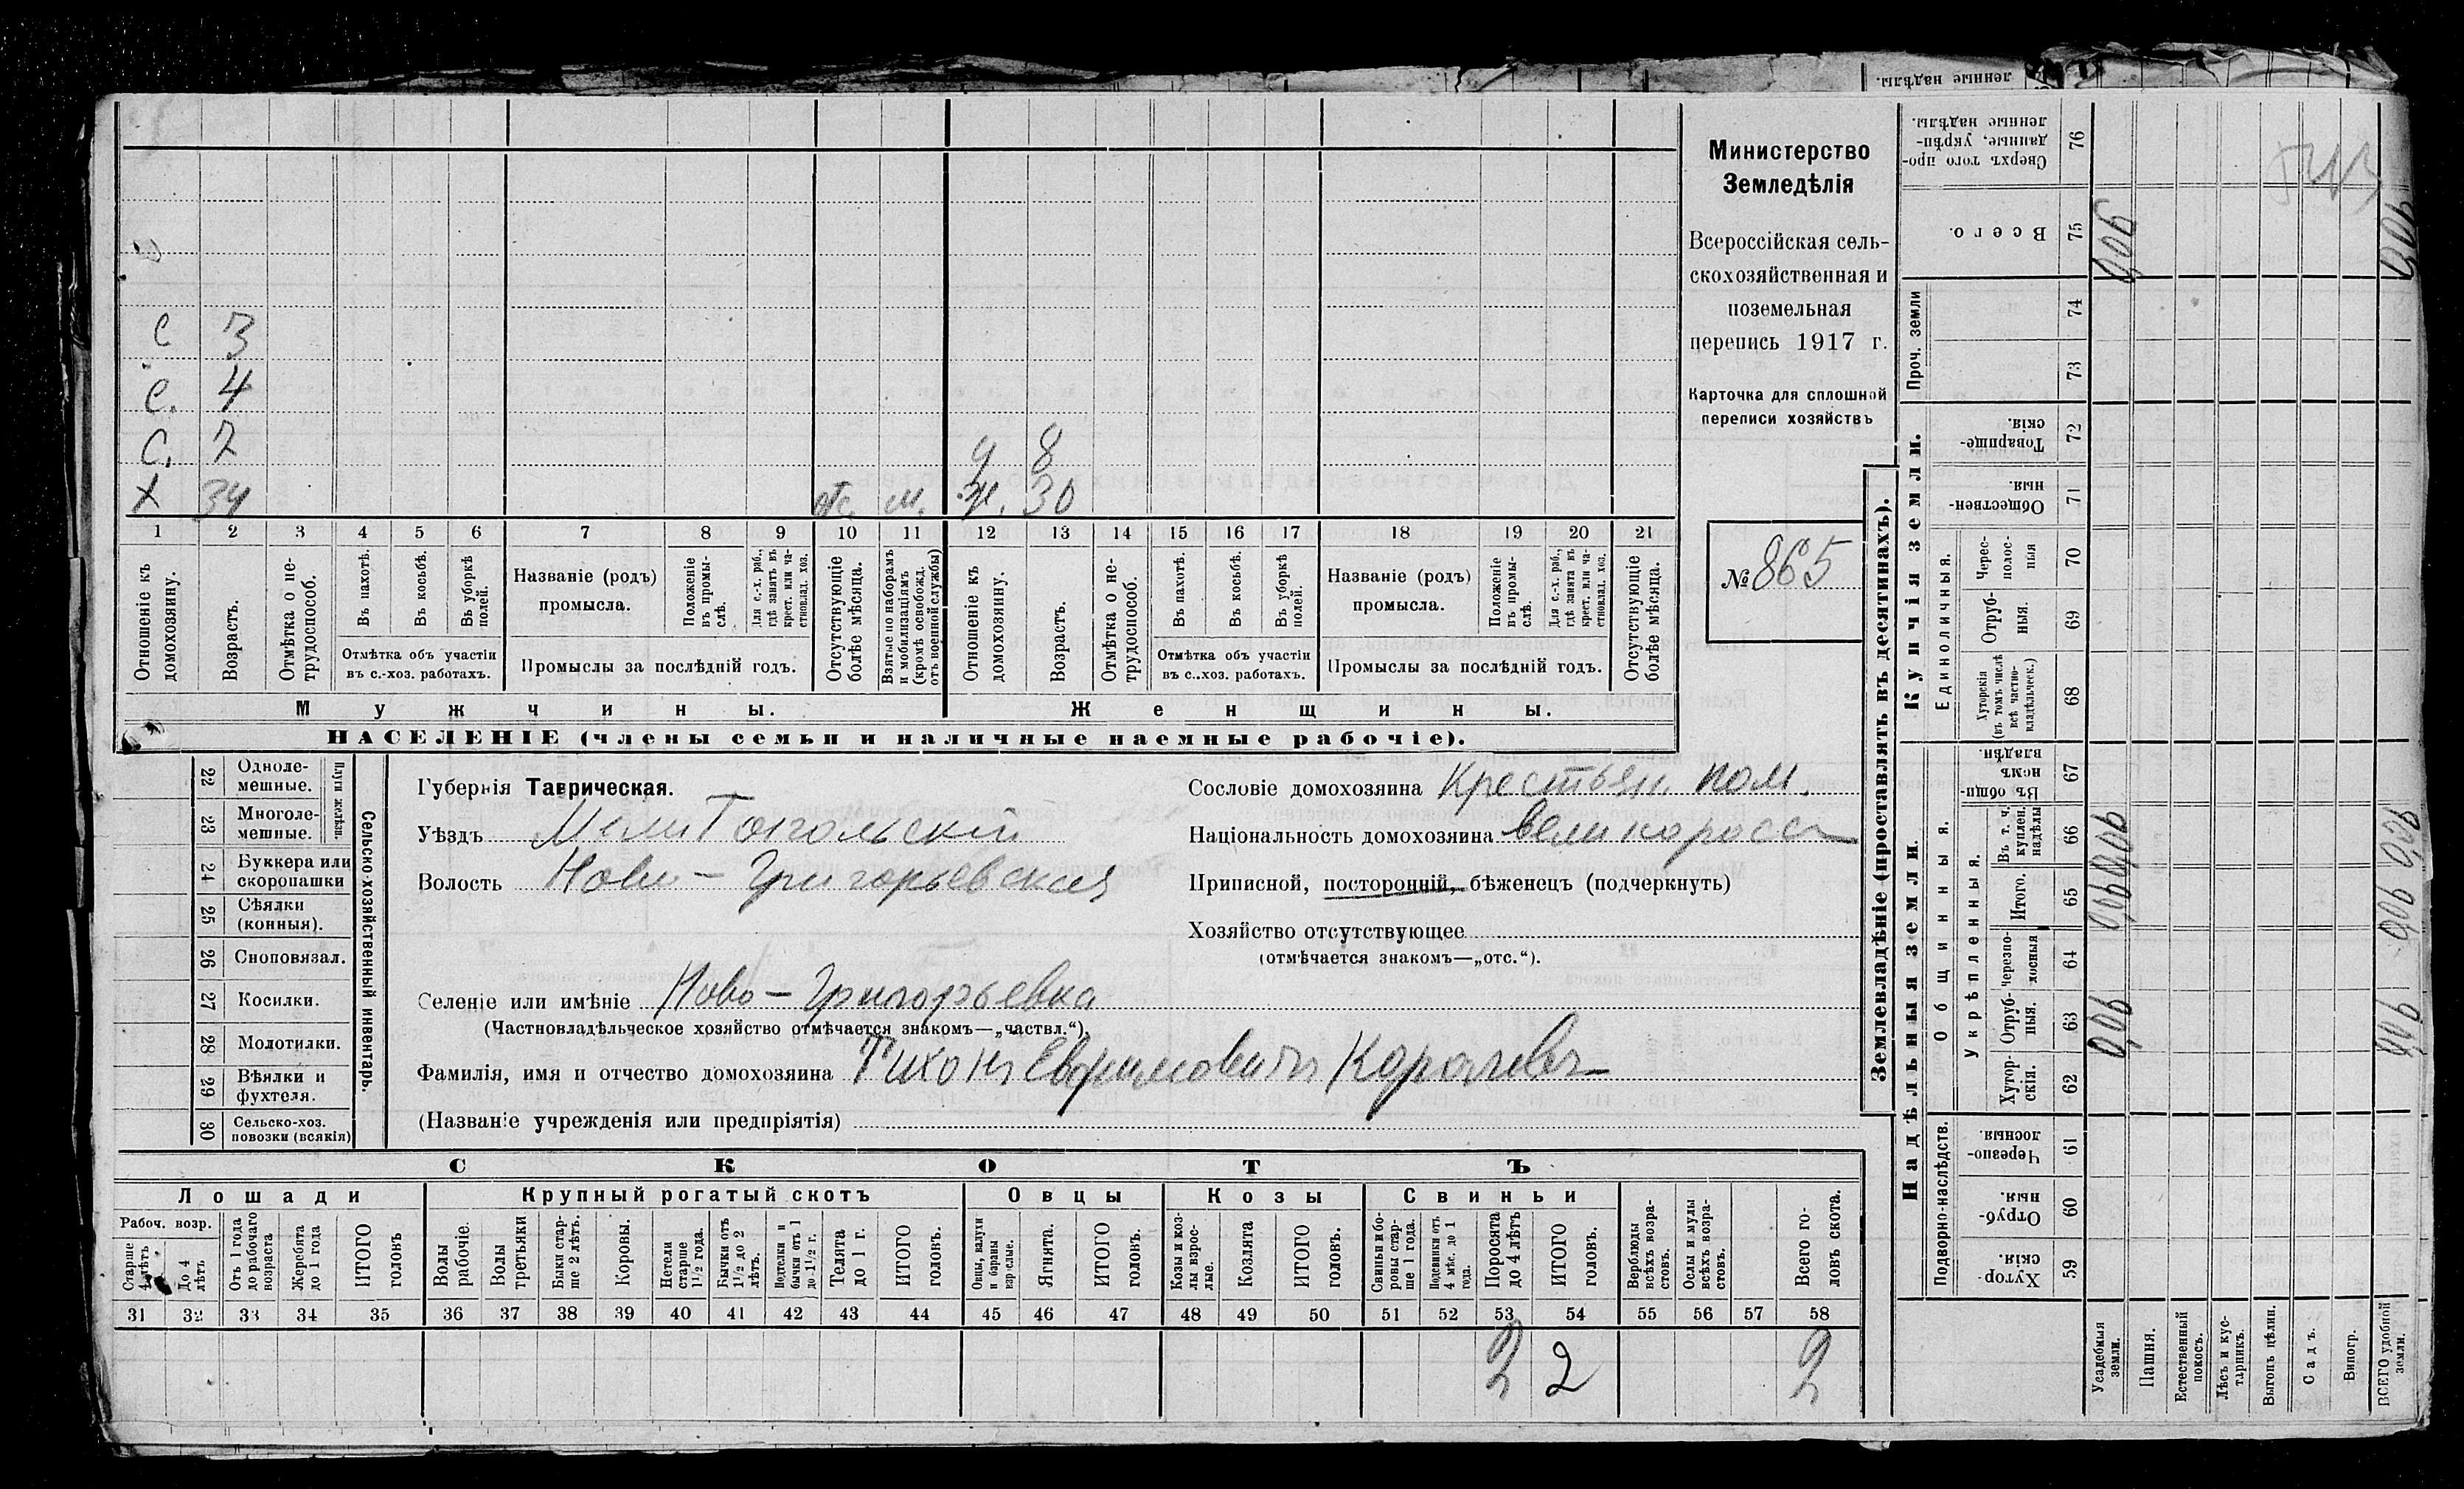 ленные надѣлы.
С 3
С. 4
С. 7 д 8
Х 34 отс. м. Ж. 30
1 2 3 4 5 6 7 8 9 10 11 12 13 14 15 16 17 18 19 20 21
Отношеніе къ домохозяину.
Возрастъ.
Отмѣтка о не-трудоспособ.
Въ пахотѣ.
Въ косьбѣ.
Въ уборкѣ полей.
Отмѣтка объ участіи
въ с.-хоз. работахъ.
Названіе (родъ)
промысла.
Положеніе въ промы-слѣ.
Для с.-х. раб., гдѣ занятъ въ крест. или ча-стновлад. хоз.
Промыслы за послѣдній годъ.
Отсутствующіе болѣе мѣсяца.
Взятые по наборамъ и мобилизаціямъ (кромѣ освобожд. отъ военной службы)
Отношеніе къ домохозяину.
Возрастъ.
Отмѣтка о не-трудоспособ.
Въ пахотѣ.
Въ косьбѣ.
Въ уборкѣ полей.
Отмѣтка объ участіи
въ с..хоз. работахъ.
Названіе (родъ)
промысла.
Положеніе въ промы-слѣ.
Для с.-х. раб., гдѣ занята въ крест. или ча-стновлад. хоз.
Промыслы за послѣдній годъ.
Отсутствующіе болѣе мѣсяца.
Мужчины.
Женщины.
НАСЕЛЕНІЕ (члены семьи и наличные наемные рабочіе).
Министерство
Земледѣлія
Всероссійская сель-
скохозяйственная и
поземельная
перепись 1917 г.
Карточка для сплошной
переписи хозяйствъ
№ 865
Сельско-хозяйственный инвентарь.
Плуги желѣзн.
22 Одноле-мешные.
23 Многоле-мешные.
24 Буккера или скоропашки
25 Сѣялки (конныя).
26 Сноповязал.
27 Косилки.
28 Молотилки.
29 Вѣялки и фухтеля.
30 Сельско-хоз. повозки (всякія)
Губернія Таврическая.
Уѣздъ Мелитопольскій
Волость Ново-Григорьевская
Селеніе или имѣніе Ново-Григорьевка
(Частновладѣльческое хозяйство отмѣчается знакомъ—„частвл.“).
Фамилія, имя и отчество домохозяина Тихонъ
(Названіе учрежденія или предпріятія)
Сословіе домохозяина Крестьян.
Національность домохозяина великоросс
Приписной, посторонній, бѣженецъ (подчеркнуть)
Хозяйство отсутствующее
(отмѣчается знакомъ—„отс.“).
СКОТЪ
Лошади
Рабоч. возр.
Старше 4 лѣтъ
До 4 лѣтъ
Отъ 1 года до рабочаго возраста
Жеребята до 1 года
ИТОГО головъ
Крупный рогатый скотъ
Волы рабочіе
Волы третьяки
Быки стар-ше 2 лѣтъ.
Коровы.
Нетели старше 1½ года.
Бычки отъ 1½ до 2 лѣтъ.
Подтелки и бычки отъ 1 до 1½ г.
Телята до 1 г.
ИТОГО головъ.
Овцы
Овцы, валухи и бараны взрослые.
Ягнята.
ИТОГО головъ.
Козы
Козы и коз-лы взрос-лые.
Козлята
ИТОГО головъ.
Свиньи
Свиньи и бо-ровы стар-ше 1 года.
Подсвинки отъ 4 мѣс. до 1 года.
Поросята до 4 лѣтъ
ИТОГО головъ.
Верблюды всѣхъ возра-стовъ.
Ослы и мулы всѣхъ возра-стовъ.
Всего го-ловъ скота.
31 32 33 34 35 36 37 38 39 40 41 42 43 44 45 46 47 48 49 50 51 52 53 54 55 56 57 58
2 2 2
Землевладѣніе (проставлять въ десятинахъ).
Купчія земли.
Надѣльныя земли.
Сверхъ того про-данные, укрѣп-ленные надѣлы. 76
Всего. 75
Проч. земли 74 73
Товарище-скія. 72
Обществен-ныя. 71
Единоличныя.
Черес-полос-ныя 70
Отруб-ныя. 69
Хуторскія (въ томъ числѣ всѣ частно-владѣльческ.) 68
Общинныя.
Въ общи-нномъ владѣн. 67
Укрѣпленныя.
Въ т. ч. куплен. надѣлы 66
Итого. 65
черезпо-лосныя 64
Отруб-ныя. 63
Хутор-скія. 62
Подворно-наслѣдств.
Черезпо-лосныя. 61
Отруб-ныя. 60
Хутор-скія. 59
Усадебныя земли.
Пашня.
Естественный покосъ.
Лѣсъ и кус-тарникъ.
Выгонъ цѣлин.
Садъ.
Виногр.
ВСЕГО удобной земли.